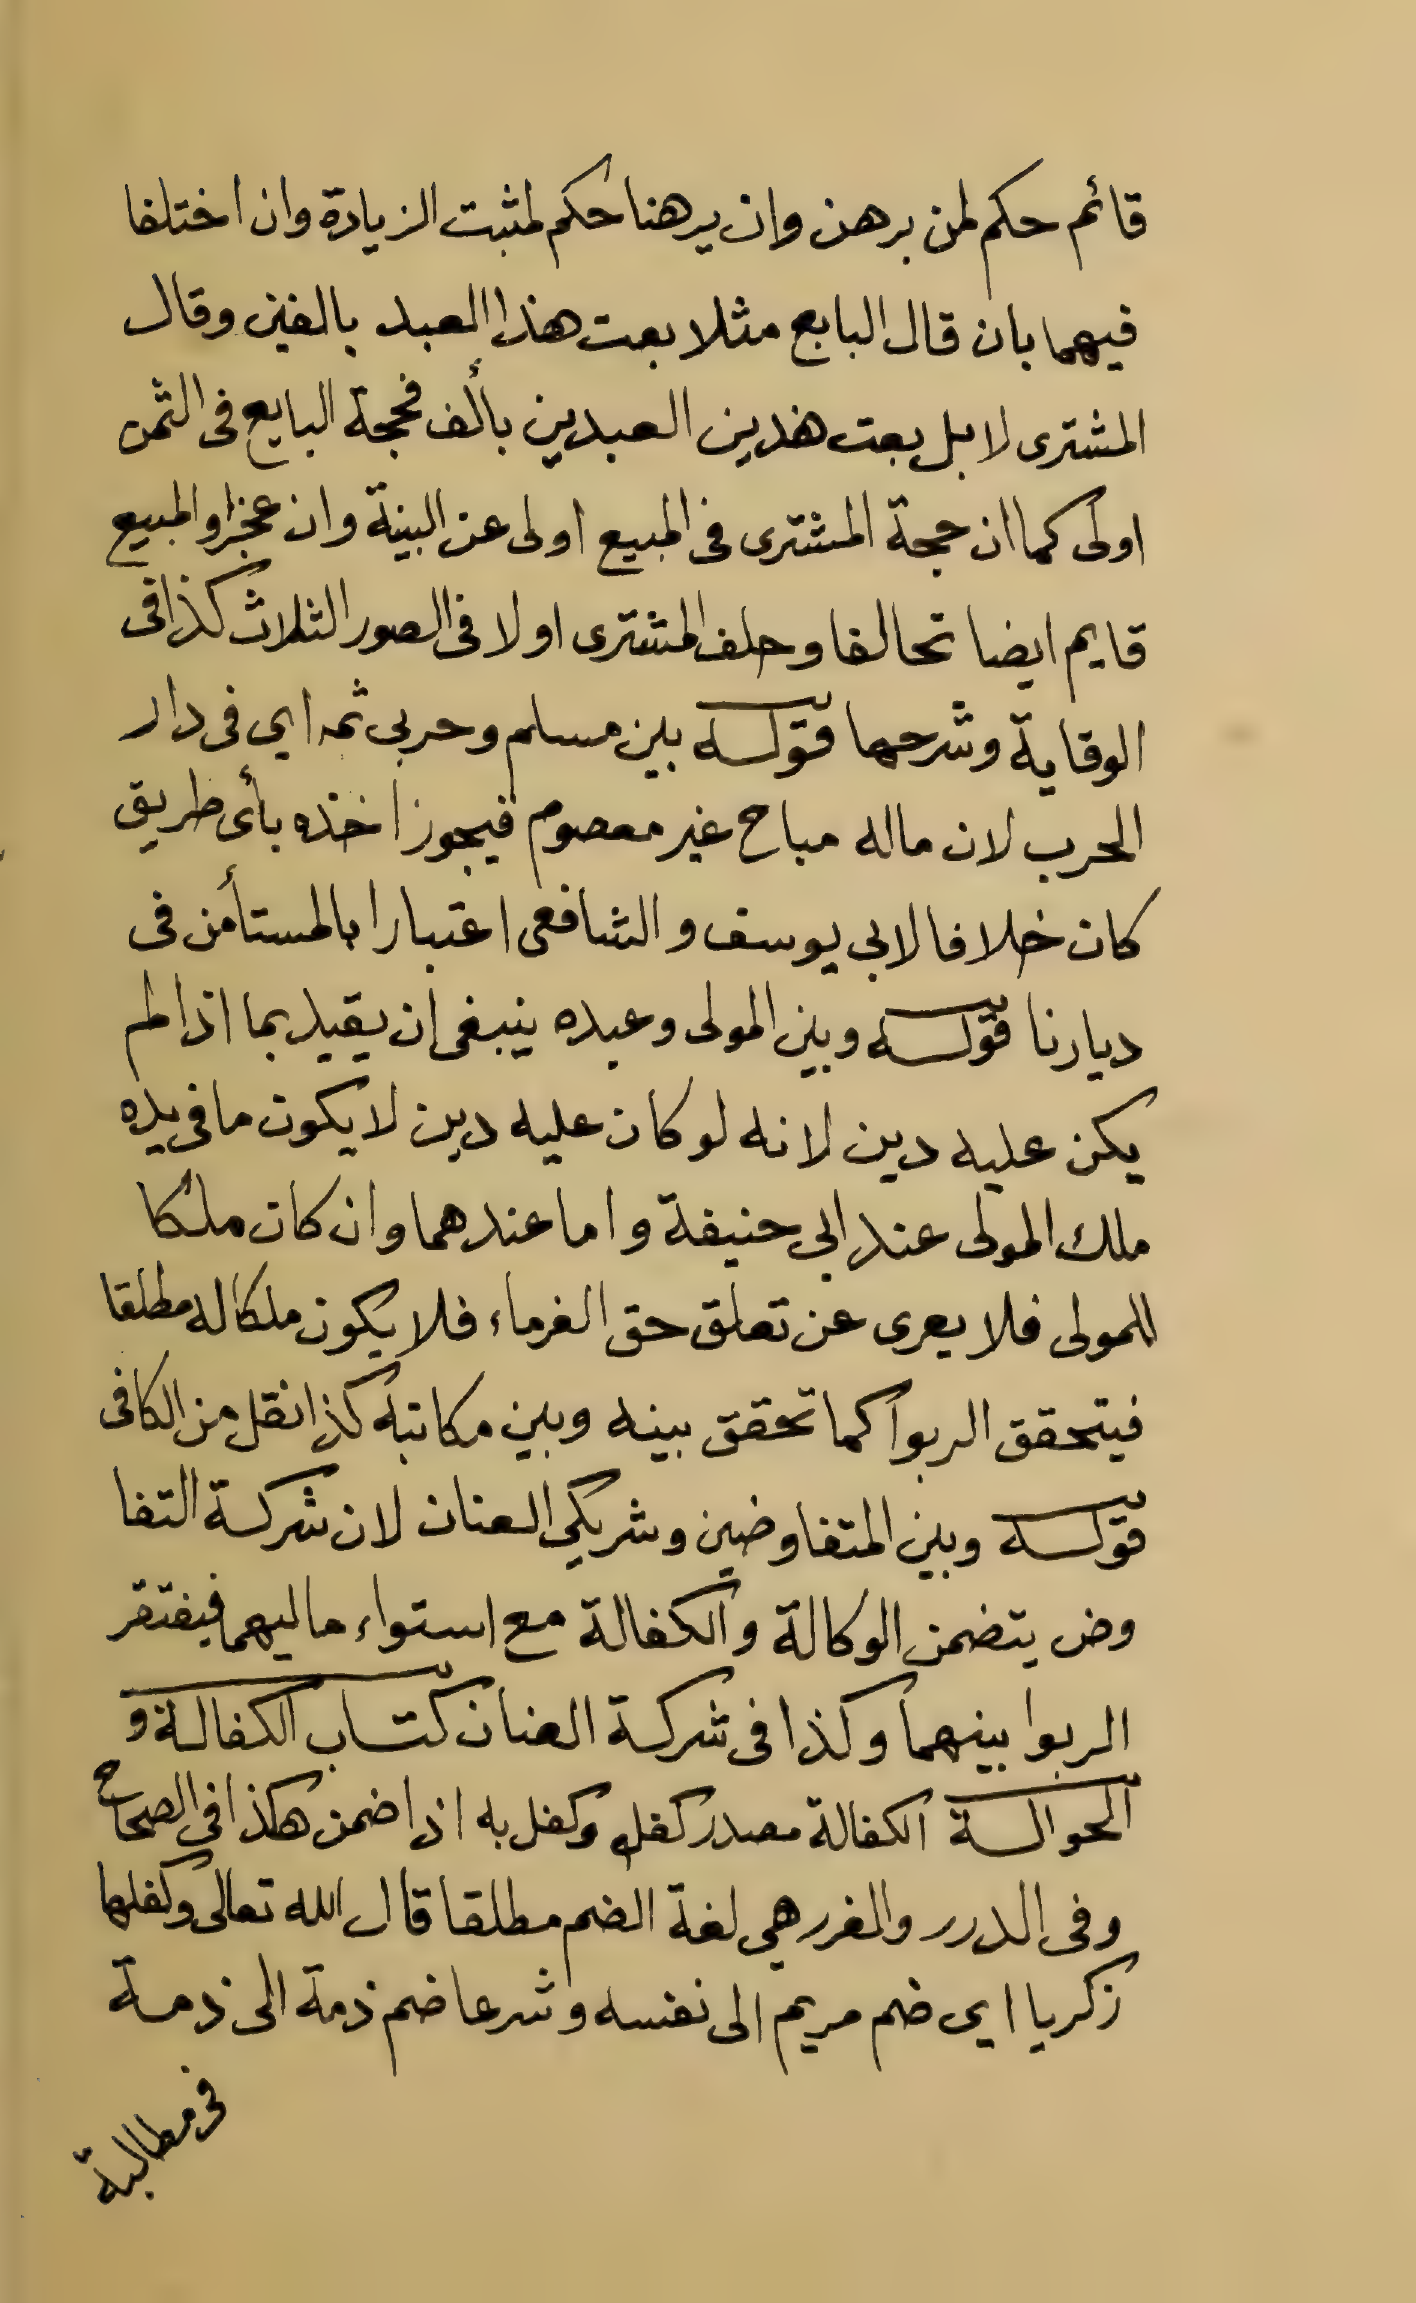 قائم حكم لمن برهن وان برهنا حكم لمثبت الزيادة وان اختلفا
فيهما بان قال البايع مثلا بعت هذا العبد بالفين وقال
المشترى لا بل بعت هذين العبدين بألف فحجة البايع فى الثمن
اولى كما ان حجة المشترى فى المبيع اولى عن البينة وان عجزا والمبيع
قايم ايضا تحالفا وحلف المشترى اولا فى الصور الثلاث كذا فى
الوقاية وشرحها قوله بين مسلم وحربى ثمه اى فى دار
الحرب لان ماله مباح غير معصوم فيجوز اخذه بأى طريق
كان خلافا لابى يوسف والشافعى اعتبارا بالمستأمن فى
ديارنا قوله وبين المولى وعبده ينبغى ان يقيد بما اذا لم
يكن عليه دين لانه لو كان عليه دين لا يكون ما فى يده
ملك المولى عند ابى حنيفة واما عندهما وان كان ملكا
للمولى فلا يعرى عن تعلق حق الغرماء فلا يكون ملكا له مطلقا
فيتحقق الربوا كما تحقق بينه وبين مكاتبه كذا نقل من الكافى
قوله وبين المتفاوضين وشريكى العنان لان شركة التفا
وض يتضمن الوكالة والكفالة مع استواء ماليهما فيفتقر
الربوا بينهما وكذا فى شركة العنان كتاب الكفالة و
الحوالة الكفالة مصدر كفل وكفل به اذا ضمن هكذا فى الصحاح
وفى الدرر والغرر هى لغة الضم مطلقا قال الله تعالى وكفلها
زكريا اى ضم مريم الى نفسه وشرعا ضم ذمة الى ذمة
فى مطالبة